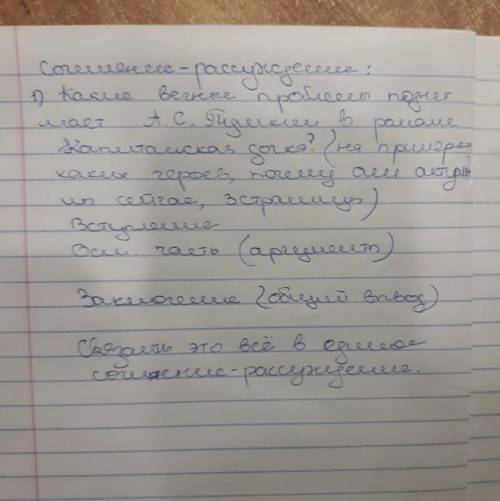 Сочинение-рассуждение:
1) Какие вечные проблемы подни
мает А.С. Пушкин в романе
Капитанская дочка? (на примере
каких героев, почему они актуальн
ны сейчас, 3 страницы)
Вступление
Осн. часть (аргументы)
Заключение (общий вывод)
Связать это всё в единое
сочинение-рассуждение.